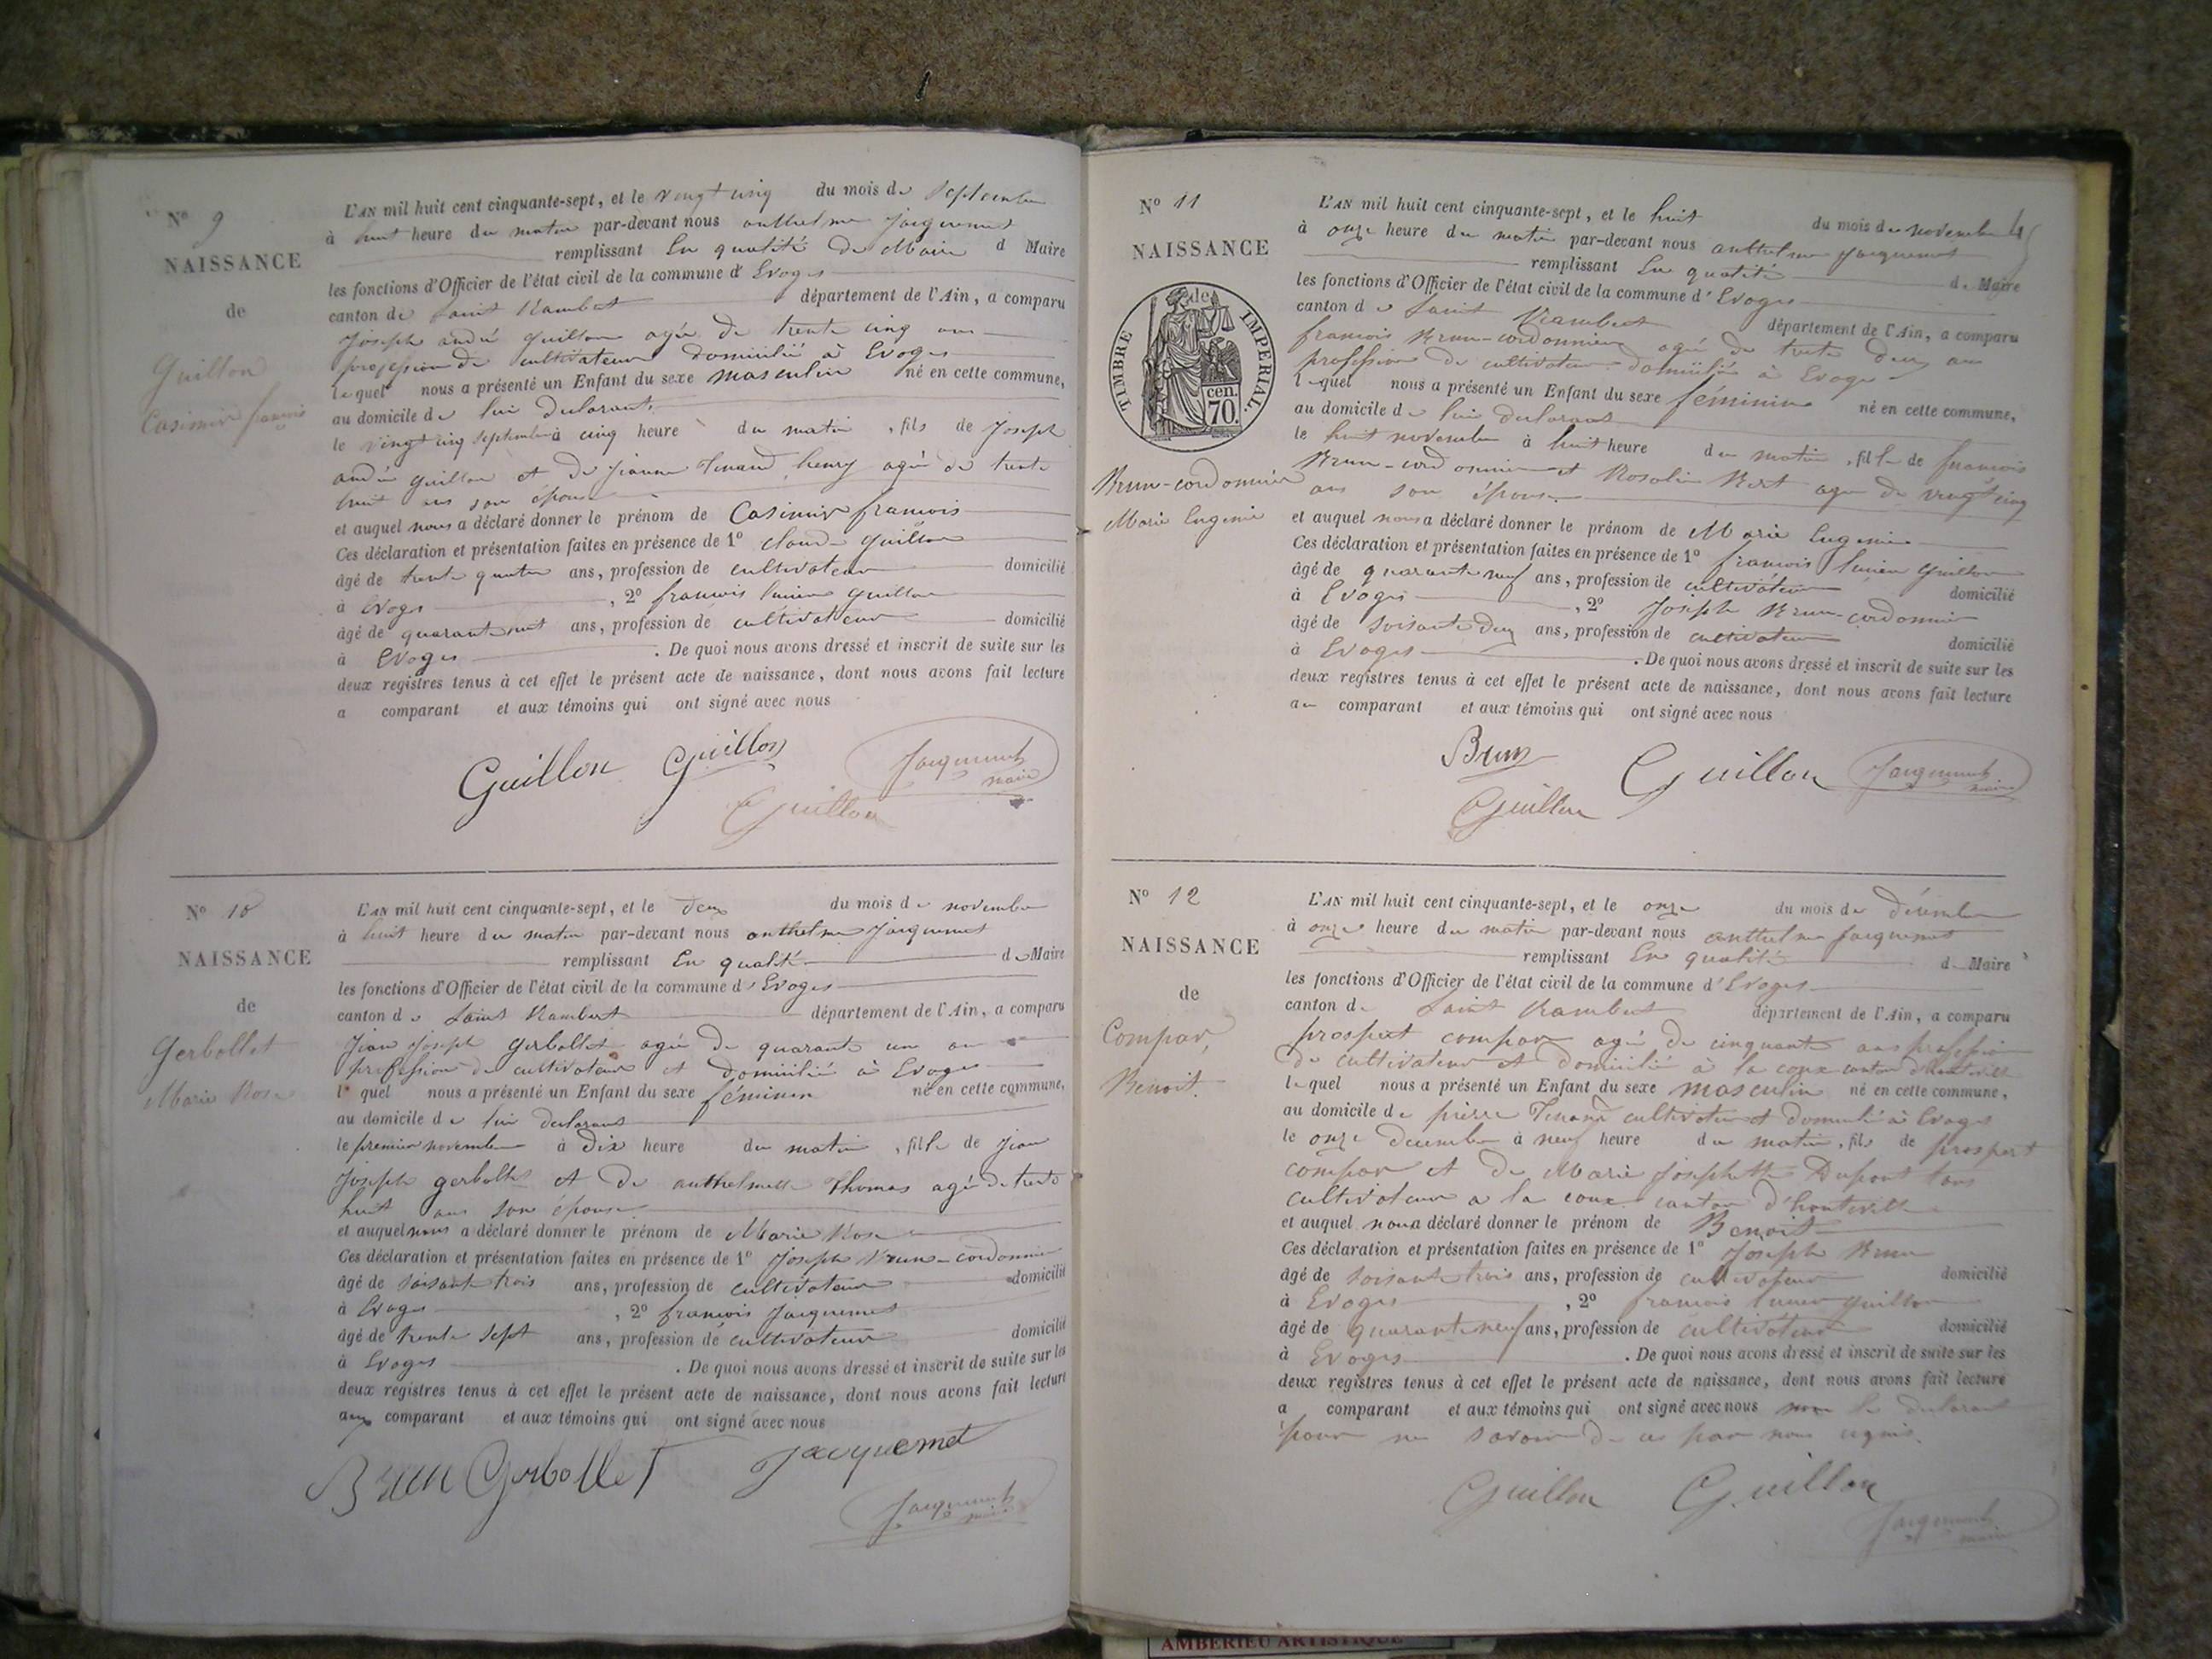 Nº 9
NAISSANCE
de
Guillon
Casimir francois
L'AN mil huit cent cinquante-sept, et le vingt cinq du mois de Septembre
à huit heure du matin par-devant nous anthelme Jacquemet
remplissant En qualité de Maire d Maire
les fonctions d'Officier de l'état civil de la commune d' Evoges
canton de Saint Rambert département de l'Ain, a comparu
Joseph andré guillon agée de trente cinq ans
profession de cultivateur domicilié à Evoges
lequel nous a présenté un Enfant du sexe masculin né en cette commune,
au domicile de lui declarant
le vingt cinq septembre à cinq heure du matin, fils de Joseph
andré guillon et de jeanne Tenand henry agée de trente
huit ans son épouse
et auquel nous a déclaré donner le prénom de Casimir francois
Ces déclaration et présentation faites en présence de 1º claude guillon
âgé de trente quatre ans, profession de cultivateur domicilié
à Evoges , 2º francois lucien guillon
âgé de quarante neuf ans, profession de cultivateur domicilié
à Evoges . De quoi nous avons dressé et inscrit de suite sur les
deux registres tenus à cet effet le présent acte de naissance, dont nous avons fait lecture
a comparant et aux témoins qui ont signé avec nous
Guillon Guillon Jacquemet
maire
Guillon
Nº 10
NAISSANCE
de
Gerbollet
Marie Rose
L'AN mil huit cent cinquante-sept, et le deux du mois de novembre
à huit heure du matin par-devant nous anthelme Jacquemet
remplissant En qualité de Maire
les fonctions d'Officier de l'état civil de la commune d' Evoges
canton de Saint Rambert département de l'Ain, a comparu
Jean Joseph gerbollet agée de quarante un an
profession de cultivateur et domicilié à Evoges
lequel nous a présenté un Enfant du sexe féminin né en cette commune,
au domicile de lui declarant
le premier novembre à dix heure du matin, fille de Jean
Joseph gerbollet et de anthelmette Thomas agée de trente
huit ans son épouse
et auquel nous a déclaré donner le prénom de Marie Rose
Ces déclaration et présentation faites en présence de 1º Joseph Brun-cordonnier
âgé de soisante trois ans, profession de cultivateur domicilié
à Evoges , 2º francois Jacquemet
âgé de trente sept ans, profession de cultivateur domicilié
à Evoges . De quoi nous avons dressé et inscrit de suite sur les
deux registres tenus à cet effet le présent acte de naissance, dont nous avons fait lecture
aux comparant et aux témoins qui ont signé avec nous
Brun Gerbollet Jacquemet
Jacquemet
maire
Nº 11
NAISSANCE
de
TIMBRE IMPERIAL.
cen.
70.
Brun-cordonnier
Marie Eugenie
L'AN mil huit cent cinquante-sept, et le huit du mois de novembre
à onze heure du matin par-devant nous anthelme Jacquemet
remplissant En qualité de Maire
les fonctions d'Officier de l'état civil de la commune d' Evoges
canton de Saint Rambert département de l'Ain, a comparu
francois Brun-cordonnier agée de trente deux an
profession de cultivateur domicilié à Evoges
lequel nous a présenté un Enfant du sexe féminin né en cette commune,
au domicile de lui declarant
le huit novembre à huit heure du matin, fille de francois
Brun-cordonnier et Rosalie Bert agee de vingt cinq
ans son épouse
et auquel nous a déclaré donner le prénom de Marie Eugenie
Ces déclaration et présentation faites en présence de 1º francois lucien guillon
âgé de quarante neuf ans, profession de cultivateur domicilié
à Evoges , 2º Joseph Brun-cordonnier
âgé de soisante deux ans, profession de cultivateur domicilié
à Evoges . De quoi nous avons dressé et inscrit de suite sur les
deux registres tenus à cet effet le présent acte de naissance, dont nous avons fait lecture
au comparant et aux témoins qui ont signé avec nous
Brun Guillon Jacquemet
maire
Guillon
Nº 12
NAISSANCE
de
Compar,
Benoit.
L'AN mil huit cent cinquante-sept, et le onze du mois de décembre
à onze heure du matin par-devant nous anthelme Jacquemet
remplissant En qualité de Maire
les fonctions d'Officier de l'état civil de la commune d' Evoges
canton de Saint Rambert département de l'Ain, a comparu
prospert compar agé de cinquante ans profession
de cultivateur et domicilié à la coux canton d'hauteville
lequel nous a présenté un Enfant du sexe masculin né en cette commune,
au domicile de pierre Tenand cultivateur et domicilié à Evoges
le onze decembre à neuf heure du matin, fils de prospert
compar et de Marie Josephette Dupont tous
cultivateur a la coux canton d'hauteville
et auquel nous a déclaré donner le prénom de Benoit
Ces déclaration et présentation faites en présence de 1º Joseph Brun
âgé de soisante trois ans, profession de cultivateur domicilié
à Evoges , 2º francois lucien guillon
âgé de quarante neuf ans, profession de cultivateur domicilié
à Evoges . De quoi nous avons dressé et inscrit de suite sur les
deux registres tenus à cet effet le présent acte de naissance, dont nous avons fait lecture
a comparant et aux témoins qui ont signé avec nous non le declarant
pour ne savoir de ce par nous requis.
Guillon Guillon
Jacquemet
maire
AMBERIEU ARTISTIQUE